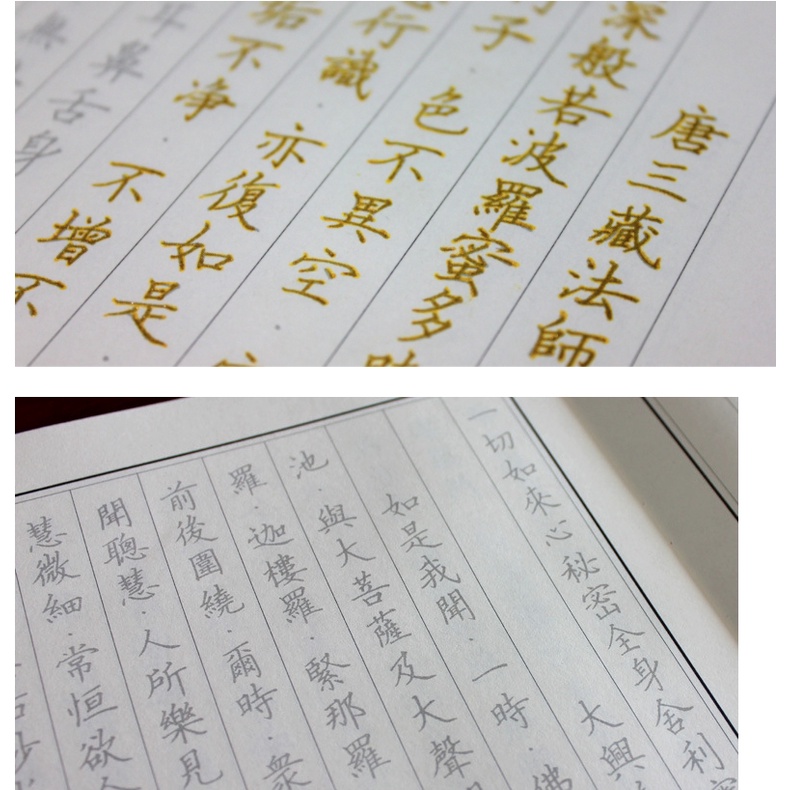 唐三藏法師
深般若波羅蜜多時
子 色不異空
行識 亦復如是
垢不净 不增不
耳鼻舌身
無
一切如來心秘密全身舍利
大興
如是我聞．一時．佛
池．與大菩薩及大聲
羅．迦樓羅．緊那羅
前後圍繞．爾時．衆
聞聰慧．人所樂見
慧微細．常恒欲令